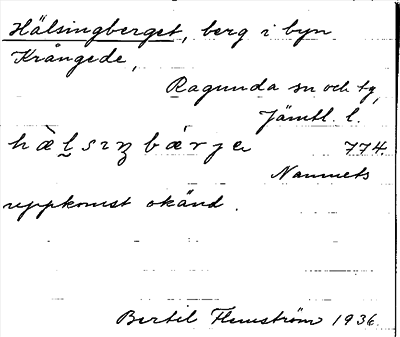 Hälsingberget, berg i byn
Krångede,
Ragunda sn och tg,
Jämtl. l.
774.
Namnets
uppkomst okänd.
Bertil Flemström 1936.